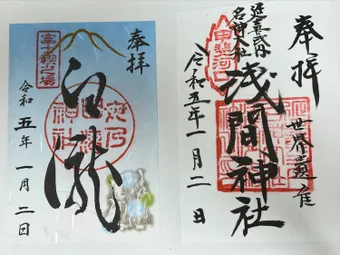 奉拝
白瀧
令和五年一月二日
奉拝
世界遺産
延喜式内
名神大社
甲斐河口
浅間神社
令和五年一月二日